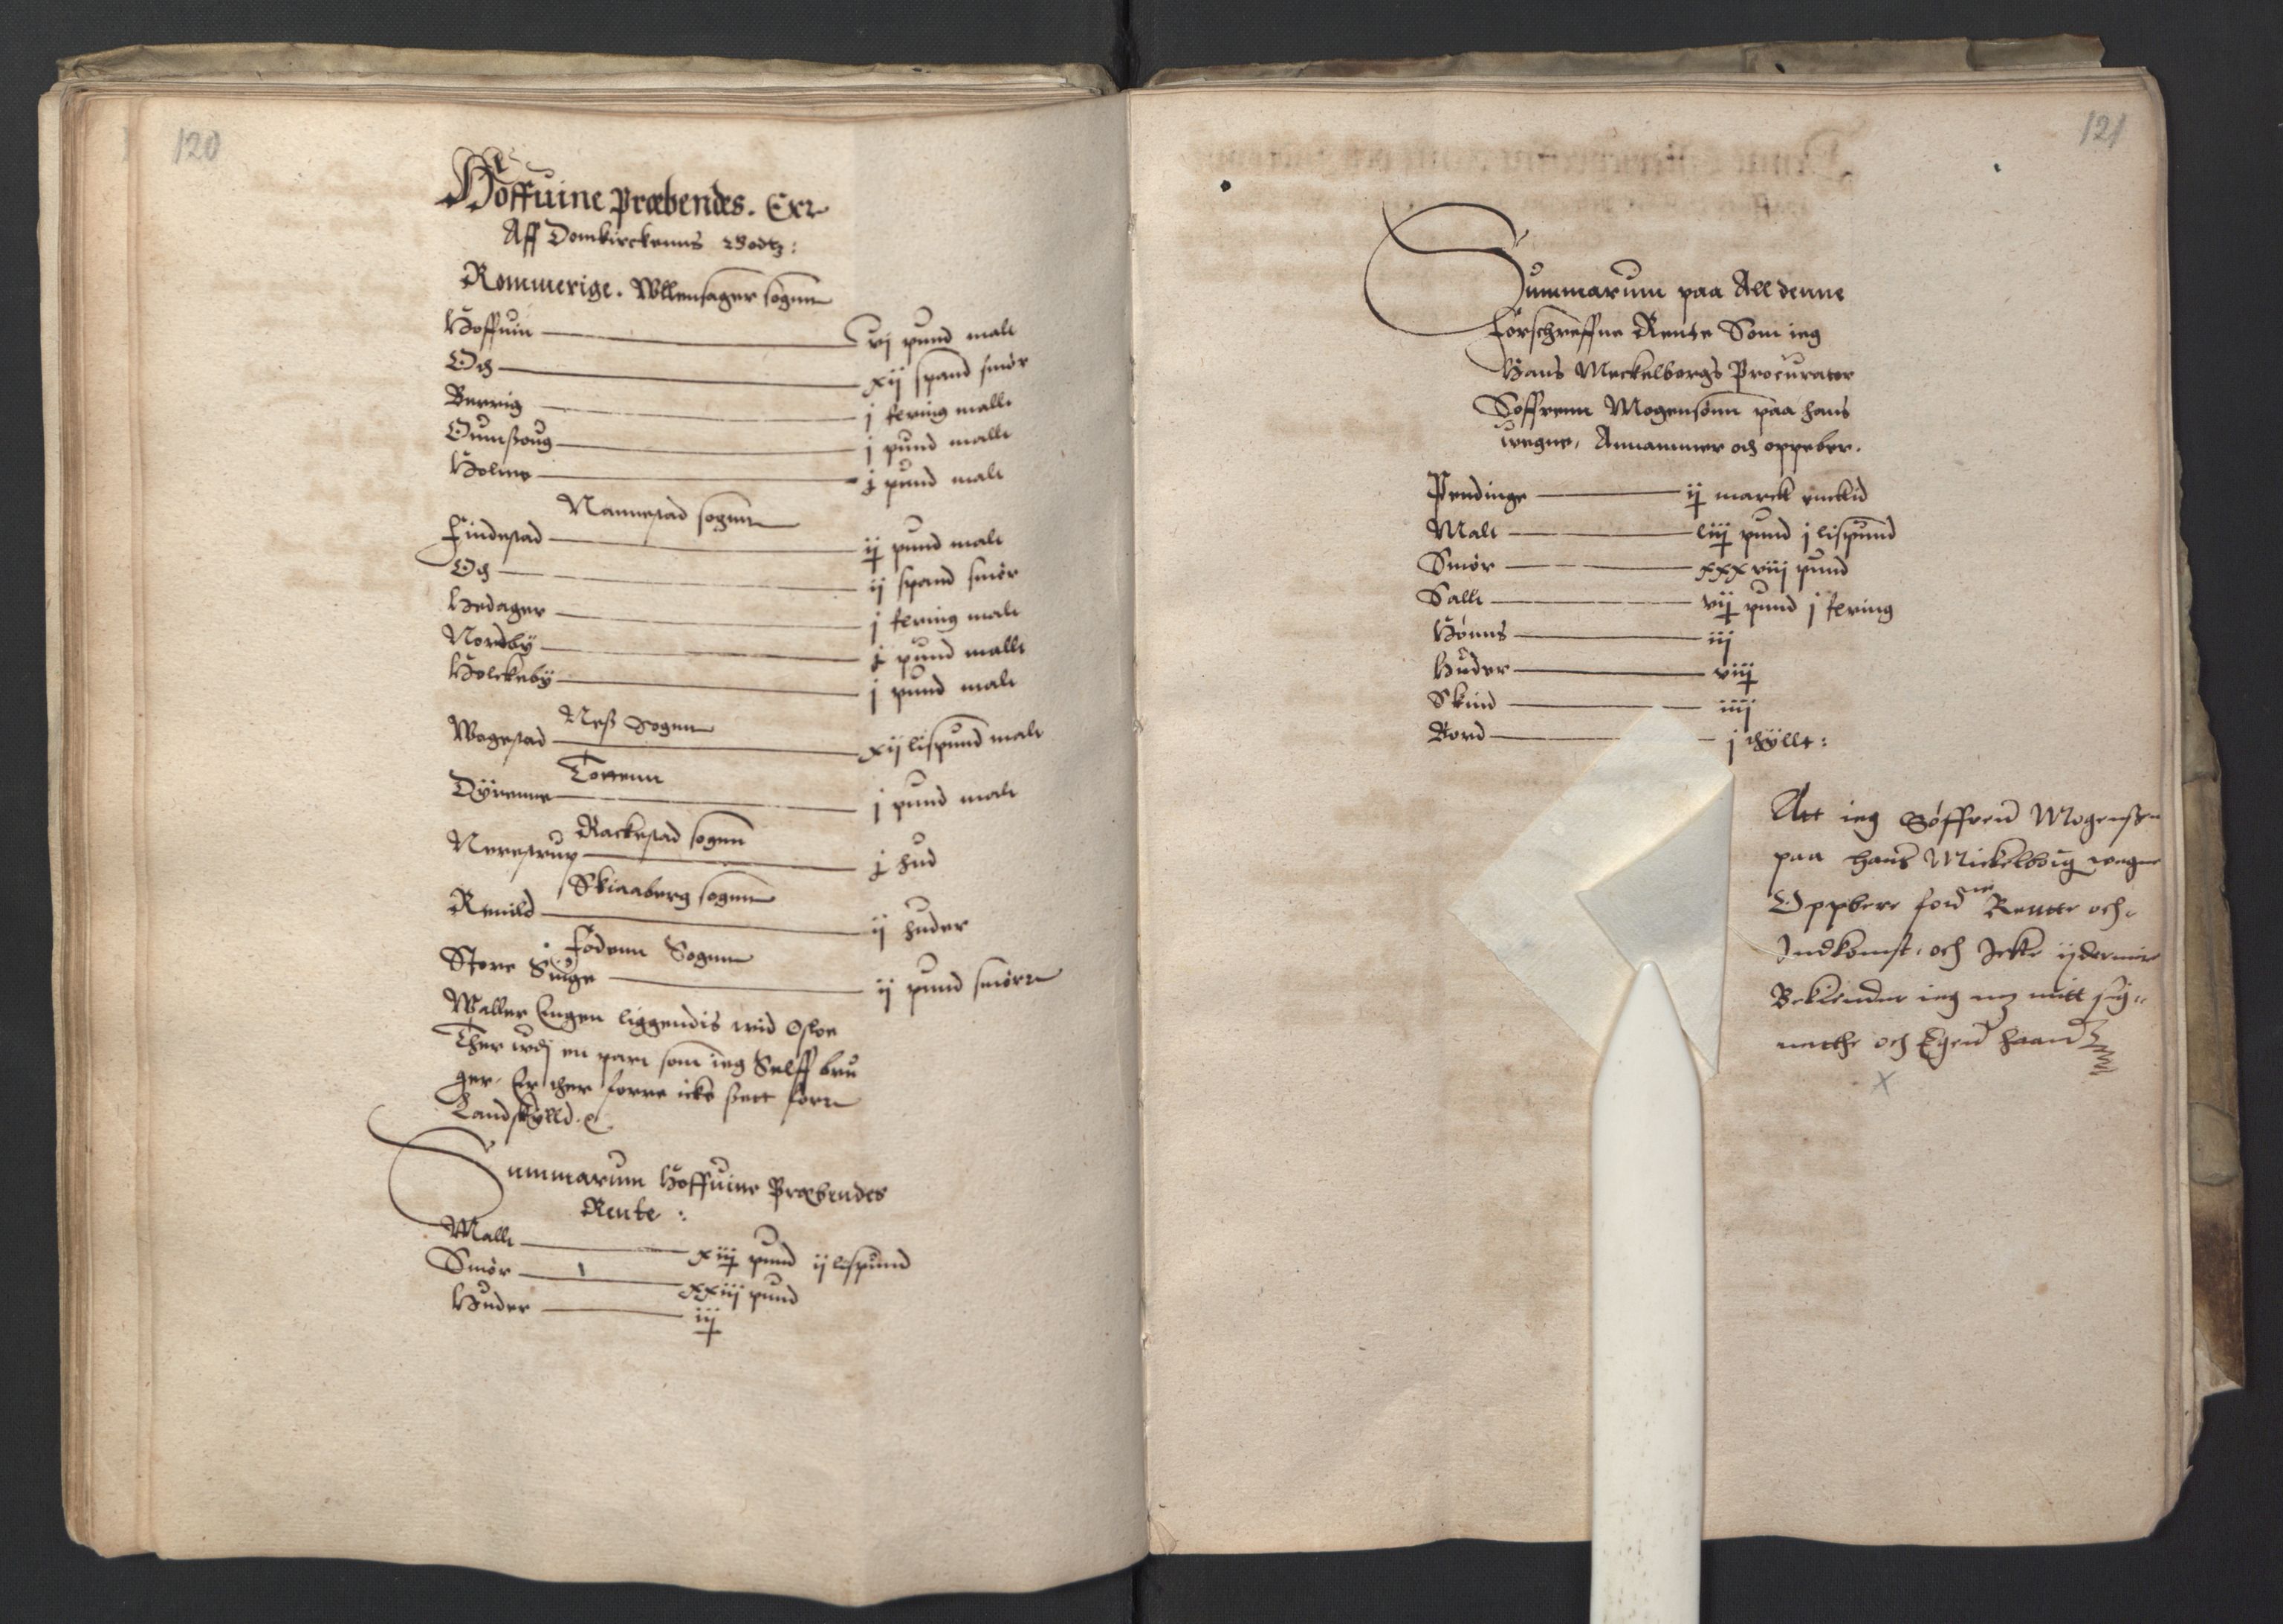 120
Hoffuine Præbendes. Exr
Aff Domkirckenns Godtz:
Rommerige. Wllensager sognn
Hoffuin — vj pund malt
Och — xij spand smør
Berrig — j fering mallt
Oumstoug — j pund mallt
Holme — j pund malt
Nannestad sognn
Findestad — ij pund malt
Och — ij spand smør
Hedager — j fering malt
Nordby — j pund mallt
Holckeby — j pund malt
Ness Sognn
Wogestad — xij lispund malt
Tottenn
Dyrenne — j pund malt
Rackestad sognn
Nerestrup — j hud
Skiaaberg sognn
Renild — ij huder
Fodenn Sognn
Store Singe — ij pund smørr
Waller Engen liggendis wid Osloe
Ther wdj en part som ieg Selff bru
ger. Er ther forre icke sett forr
Landskylld.
Summarum Hoffuine Præbendes
Rente :
Mallt — xiij pund ij lispund
Smør — xxiij pund
Huder — iij
121
Summarum paa All denne
forschreffne Rente Som ieg
Hans Meckelborgs Procurator
Søffrenn Mogensønn paa hans
wegne, Annammer och oppeber.
Pendinge — ij marck
Malt — liij pund j lispund
Smør — xxxviij pund
Sallt — vij pund j fering
Hønns — iij
Huder — viij
Skind — iiij
Bord — j thyllt :
Att ieg Søffren Mogenssen
paa hans Mickelborg wegne
Oppbere ford ne Rentte och
Indkomst, och Icke ydermire
Bekiender ieg mz mitt sig-
nethe och Egen haand